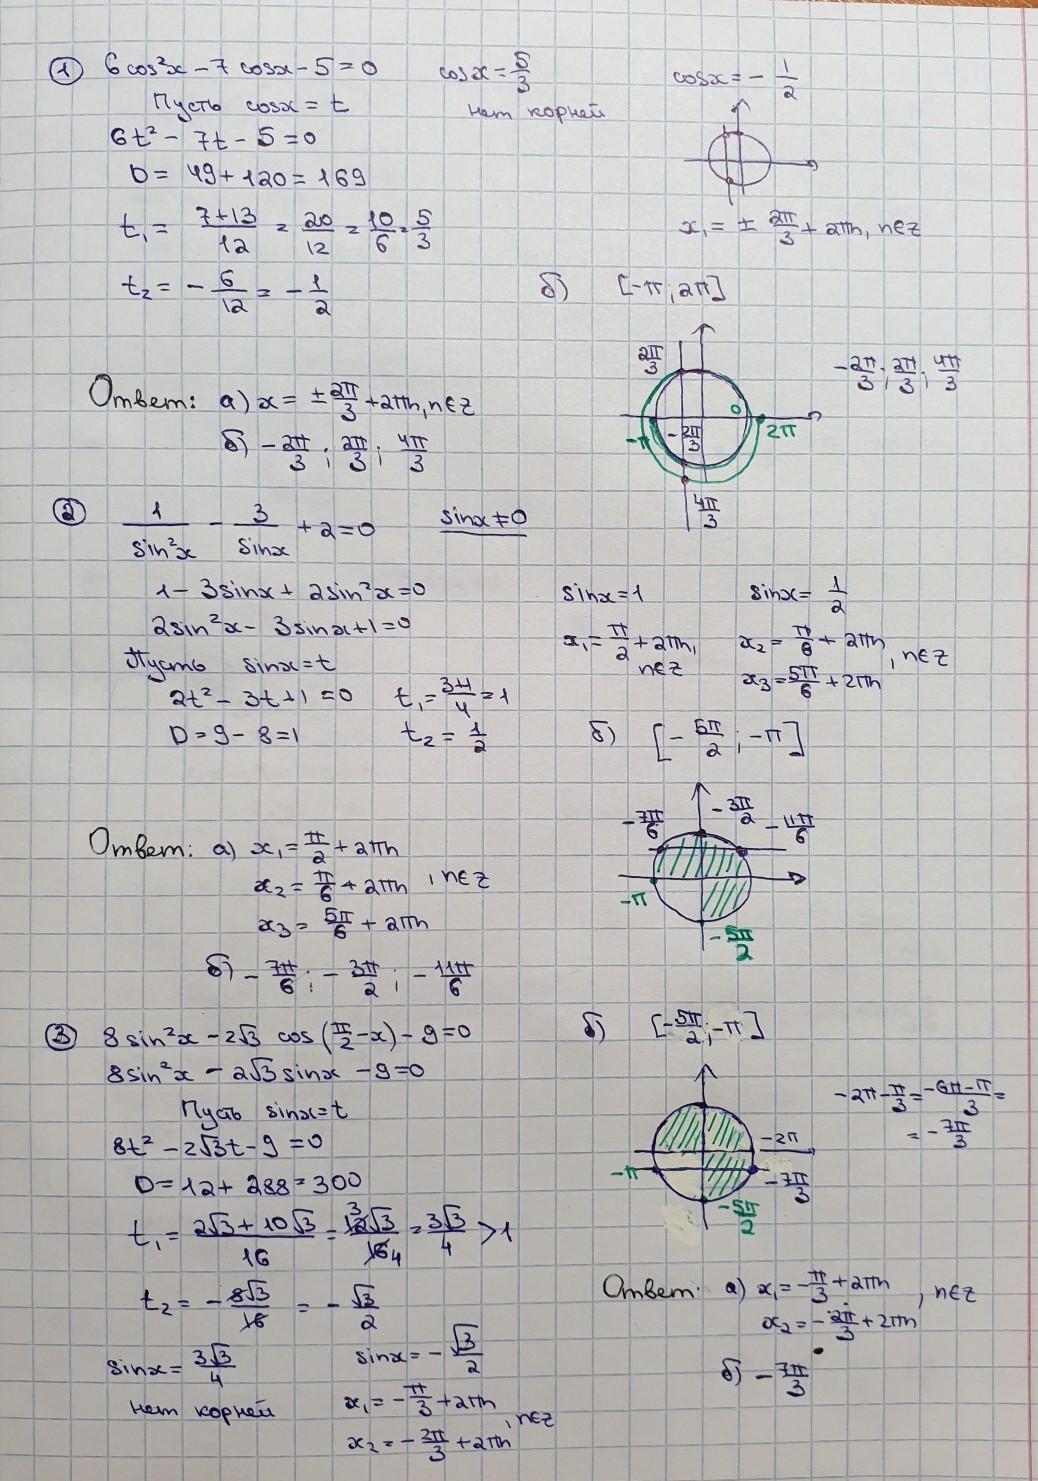 ① 6cos²x - 7cosx - 5 = 0
Пусть cosx = t
6t² - 7t - 5 = 0
D = 49 + 120 = 169
t₁ = (7+13)/12 = 20/12 = 10/6 = 5/3
t₂ = -6/12 = -1/2
cosx = 5/3
нет корней
cosx = -1/2
x₁ = ± 2π/3 + 2πn, n∈z
б) [-π; 2π]
2π/3
0
-π
-2π/3
2π
4π/3
-2π/3; 2π/3; 4π/3
Ответ: а) x = ± 2π/3 + 2πn, n∈z
б) -2π/3; 2π/3; 4π/3
② 1/sin²x - 3/sinx + 2 = 0
sinx ≠ 0
1 - 3sinx + 2sin²x = 0
2sin²x - 3sinx + 1 = 0
Пусть sinx = t
2t² - 3t + 1 = 0
D = 9 - 8 = 1
t₁ = (3+1)/4 = 1
t₂ = 1/2
sinx = 1
x₁ = π/2 + 2πn, n∈z
sinx = 1/2
x₂ = π/6 + 2πn
x₃ = 5π/6 + 2πn
, n∈z
б) [-5π/2; -π]
-7π/6
-3π/2
-11π/6
-π
-5π/2
Ответ: а) x₁ = π/2 + 2πn
x₂ = π/6 + 2πn , n∈z
x₃ = 5π/6 + 2πn
б) -7π/6; -3π/2; -11π/6
③ 8sin²x - 2√3 cos(π/2 - x) - 9 = 0
8sin²x - 2√3sinx - 9 = 0
Пусть sinx = t
8t² - 2√3t - 9 = 0
D = 12 + 288 = 300
t₁ = (2√3 + 10√3)/16 = 12√3/16 = 3√3/4 > 1
t₂ = -8√3/16 = -√3/2
sinx = 3√3/4
нет корней
sinx = -√3/2
x₁ = -π/3 + 2πn
x₂ = -2π/3 + 2πn
, n∈z
б) [-5π/2; -π]
-2π
-π
-7π/3
-5π/2
-2π - π/3 = (-6π - π)/3 =
= -7π/3
Ответ: а) x₁ = -π/3 + 2πn
x₂ = -2π/3 + 2πn
, n∈z
б) -7π/3